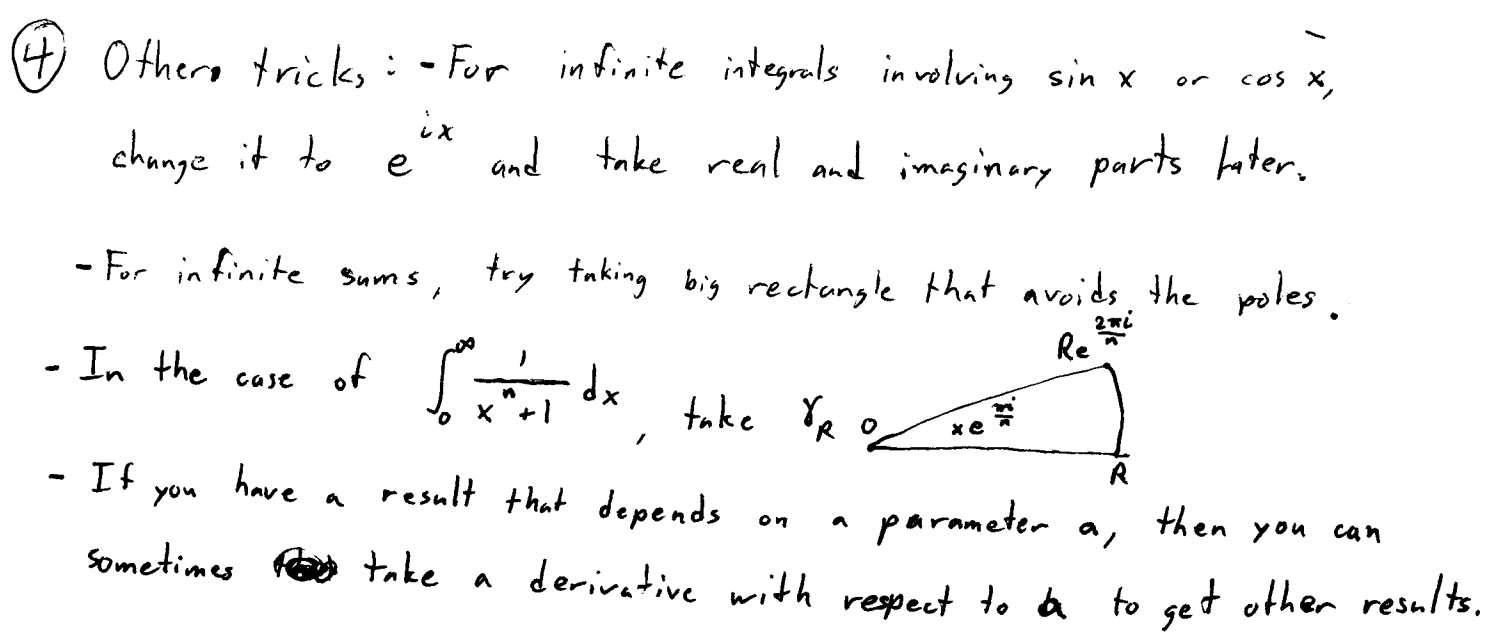 ④ Others tricks: - For infinite integrals involving sin x or cos x,
change it to e^{ix} and take real and imaginary parts later.
- For infinite sums, try taking big rectangle that avoids the poles.
- In the case of ∫_0^∞ 1/(x^n+1) dx, take γ_R 0 xe^{πi/n} R Re^{2πi/n}
- If you have a result that depends on a parameter a, then you can
sometimes take a derivative with respect to a to get other results.